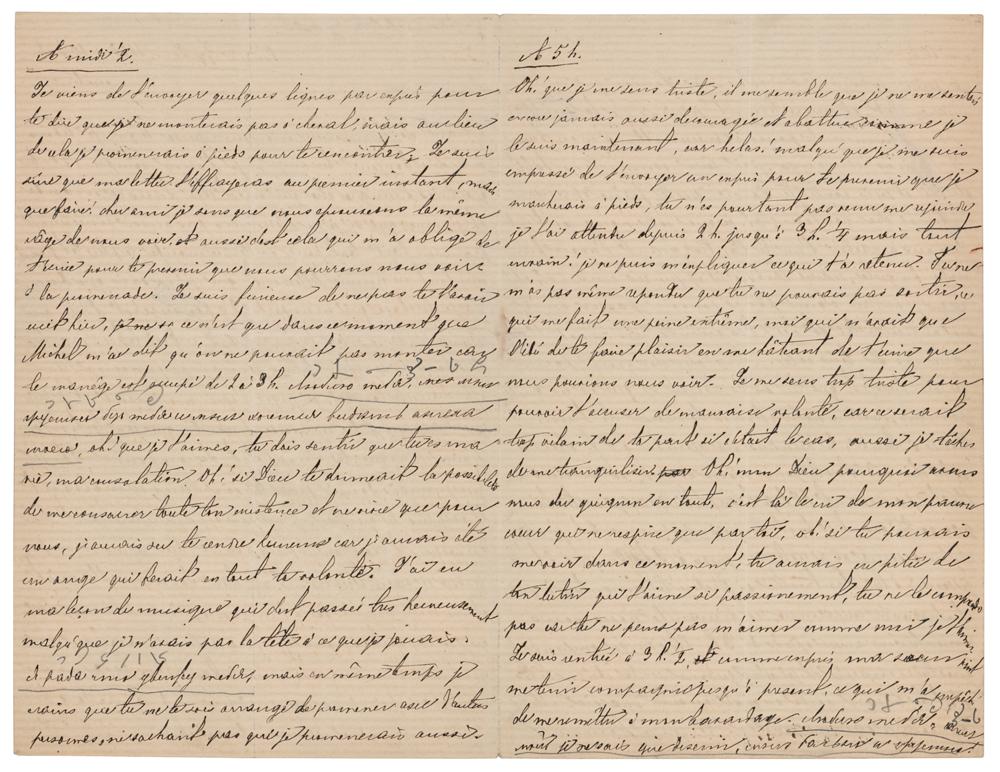 A midi ½.
Je viens de t'envoyer quelques lignes par exprès pour
te dire que je ne monterais pas à cheval, mais au lieu
de cela je promenerais à pieds pour te rencontrer, Je suis
sûre que ma lettre t'effrayeras au premier instant, mais
que faire! cher ami je sens que nous éprouvons la même
râge de nous voir, et aussi c'est cela qui m'a obligé de
t'ecrire pour te prevenir que nous pourrons nous voir
à la promenade. Je suis furieuse de ne pas te l'avoir
ecrit hier, ce n'est que dans ce moment que
Michel m'a dit qu'on ne pouvait pas monter car
le manége est occupé de 2 à 3 h.
oh! que je t'aimes, tu dois sentir que tu es ma
vie, ma consolation. Oh! si Dieu te donnerait la possibilité
de me consacrer toute ton existance et ne vivre que pour
nous, j'aurais su te rendre heureux car j'aurais été
un ange qui ferait en tout ta volonté. J'ai eu
ma leçon de musique qui s'est passée très heureusement
malgré que je n'avais pas la tête à ce que je jouais.
mais en même temps je
crains que tu ne te sois arrangé de promener avec d'autres
personnes, ne sachant pas que je promenerais aussi.
A 5 h.
Oh! que je me sens triste, il me semble que je ne me sentis
encore jamais aussi decouragée et abattue comme je
le suis maintenant, car helas! malgré que je me suis
empressé de t'envoyer un exprès pour te prevenir que je
marcherais à pieds, tu n'es pourtant pas venu me rejoindre
je t'ai attendu depuis 2 h. jusqu'à 3 h. ¼ mais tout
en vain! je ne puis m'expliquer ce qui t'a retenu. Tu ne
m'as pas même repondu que tu ne pouvais pas sortir, ce
qui me fait une peine extrême, moi qui n'avait que
l'idée de te faire plaisir en me hâtant de t'ecrire que
nous pouvions nous voir. Je me sens trop triste pour
pouvoir t'accuser de mauvaise volonté, car ce serait
trop vilain de ta part si c'était le cas, aussi je tâches
de me tranquiliser. Oh! mon Dieu pourquoi avons
nous du guignon en tout, c'est là le cri de mon pauvre
cœur qui ne respire que par toi, oh! si tu pouvais
me voir dans ce moment, tu aurais eu pitié de
ton lutin qui t'aime si passionement, tu ne le comprends
pas car tu ne peux pas m'aimer comme moi je t'aime
Je suis rentrée à 3 h. ½ comme exprès ma sœur vint
me tenir compagnie jusqu'à present, ce qui m'a empêché
de me remettre à mon bavardage.